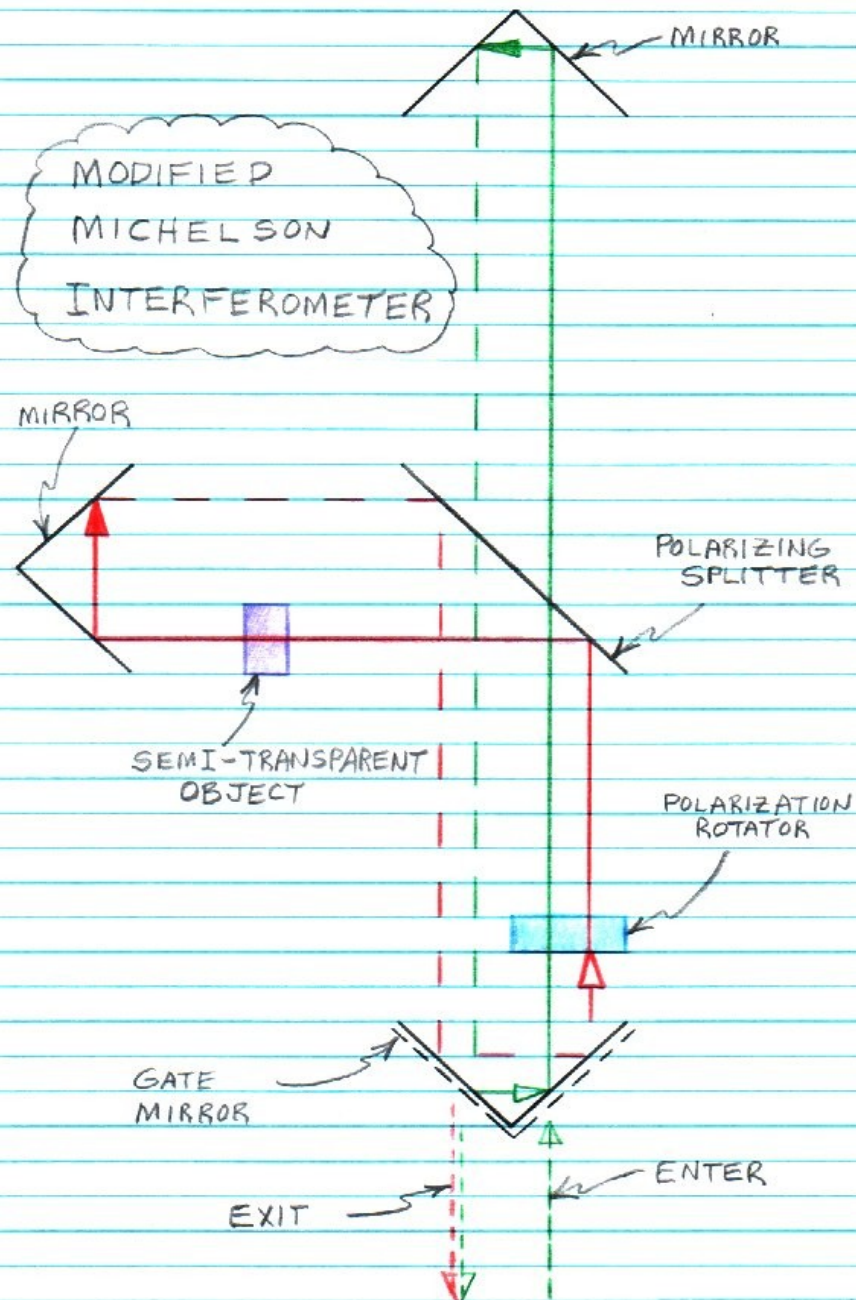 MIRROR
MODIFIED
MICHELSON
INTERFEROMETER
MIRROR
POLARIZING
SPLITTER
SEMI-TRANSPARENT
OBJECT
POLARIZATION
ROTATOR
GATE
MIRROR
ENTER
EXIT